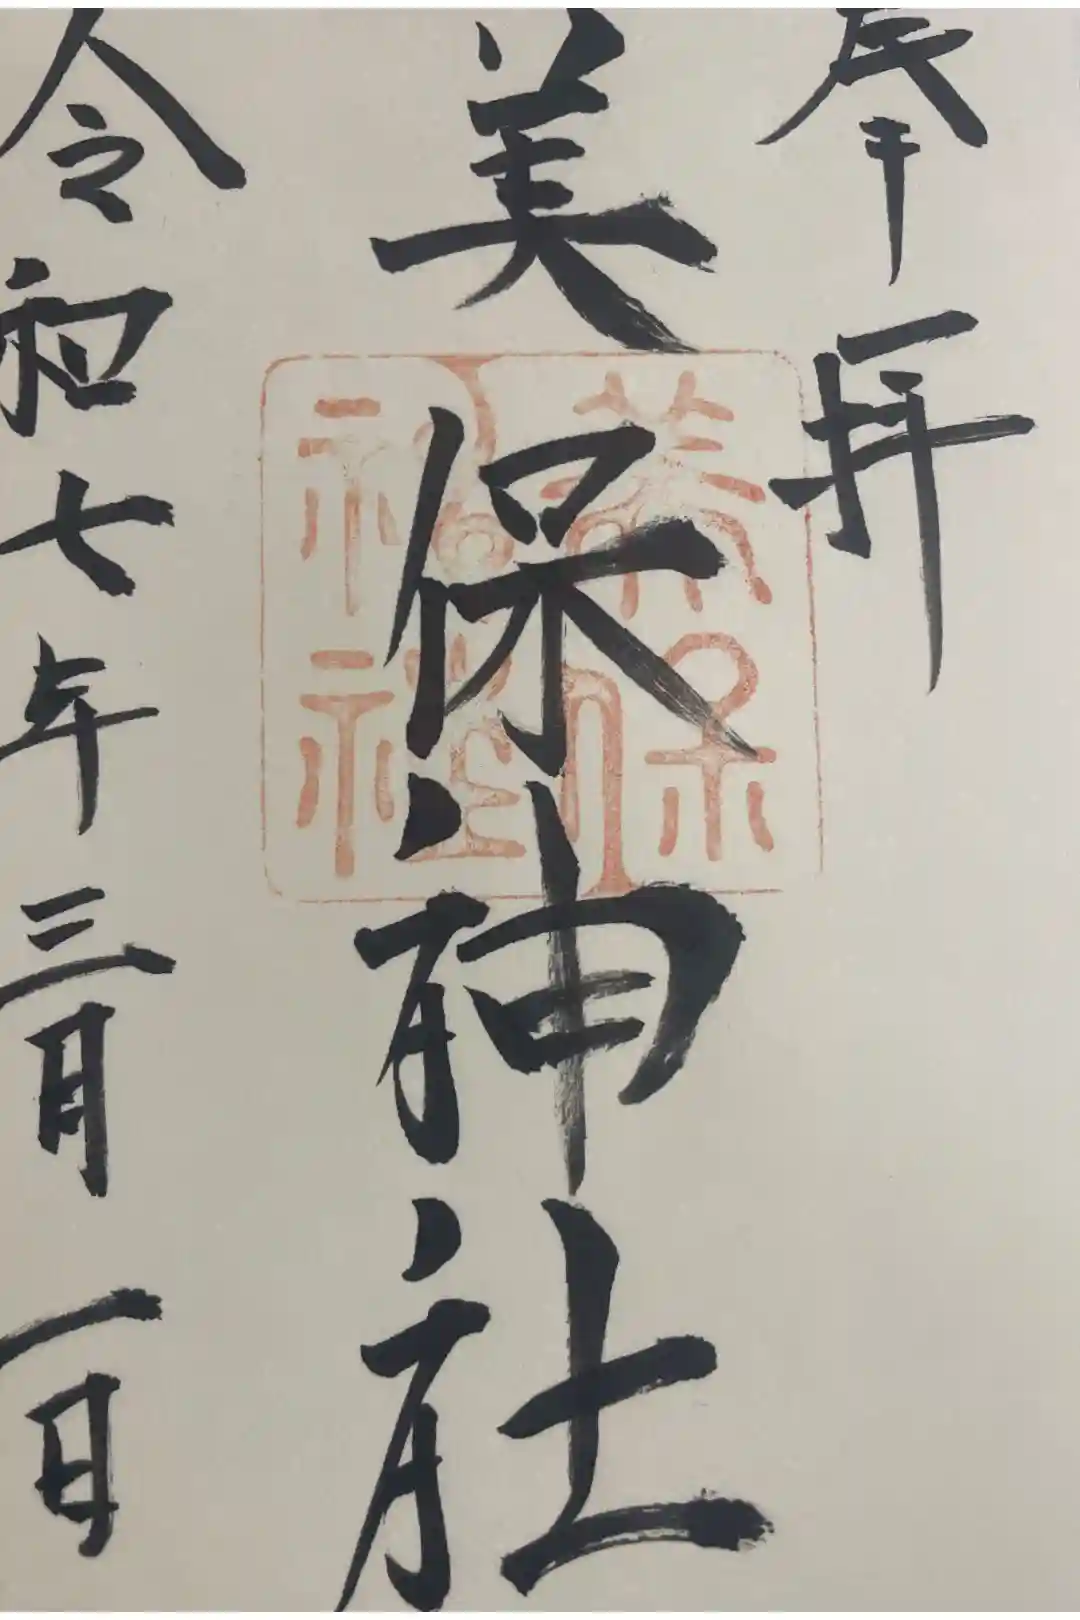 奉拝
美保神社
美保神社
令和七年三月一日